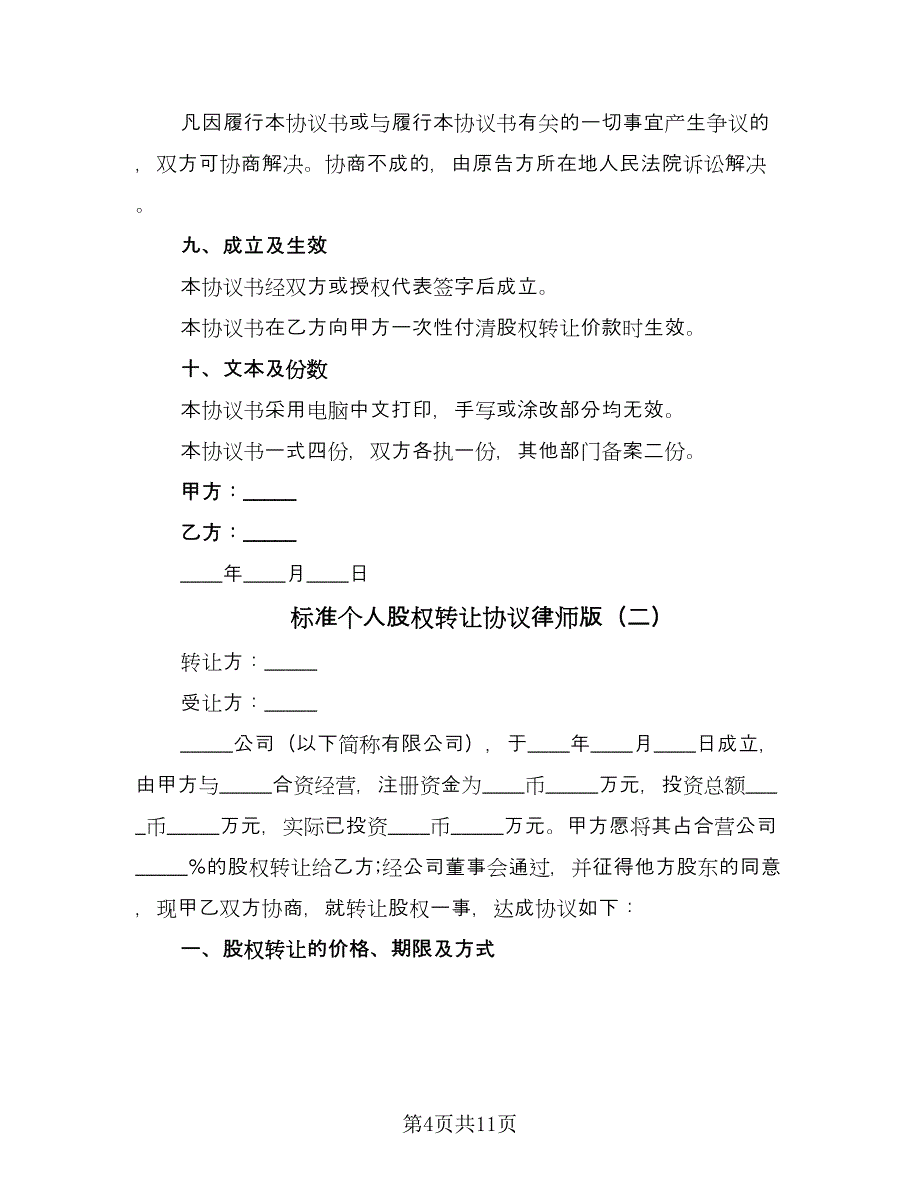 凡因履行本协议书或与履行本协议书有关的一切事宜产生争议的
，双方可协商解决。协商不成的，由原告方所在地人民法院诉讼解决
。
九、成立及生效
本协议书经双方或授权代表签字后成立。
本协议书在乙方向甲方一次性付清股权转让价款时生效。
十、文本及份数
本协议书采用电脑中文打印，手写或涂改部分均无效。
本协议书一式四份，双方各执一份，其他部门备案二份。
甲方：_____
乙方：_____
____年____月____日
标准个人股权转让协议律师版（二）
转让方：_____
受让方：_____
_____公司（以下简称有限公司），于____年____月____日成立，
由甲方与_____合资经营，注册资金为____币_____万元，投资总额___
_币_____万元，实际已投资____币_____万元。甲方愿将其占合营公司
_____%的股权转让给乙方;经公司董事会通过，并征得他方股东的同意
，现甲乙双方协商，就转让股权一事，达成协议如下：
一、股权转让的价格、期限及方式
第4页共11页